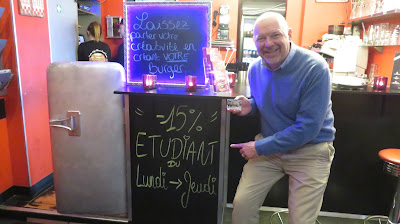 Laissez
parler votre
créativité en
créant VOTRE
Burger
" -15% "
ETUDIANT
DU
Lundi → Jeudi